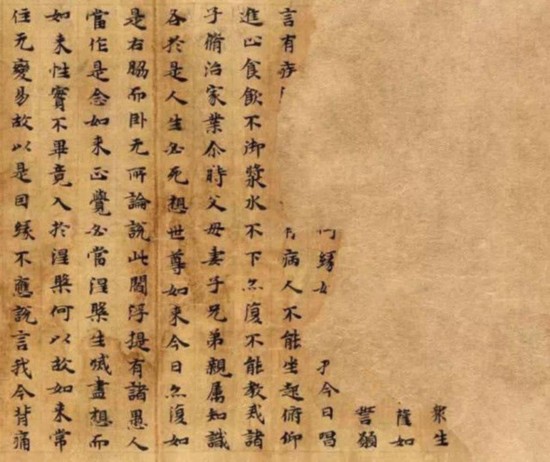 衆生
薩如
誓願
緣 今日唱
言有疾 病人不能坐起俯仰
進止食飲不御漿水不下亦復不能教戒諸
子脩治家業尒時父母妻子兄弟親属知識
各於是人生必死想世尊如來今日亦復如
是右脇而卧无所論說此閻浮提有諸愚人
當作是念如來正覺必當涅槃生滅盡想而
如來性實不畢竟入於涅槃何以故如來常
住无變易故以是因緣不應說言我今背痛